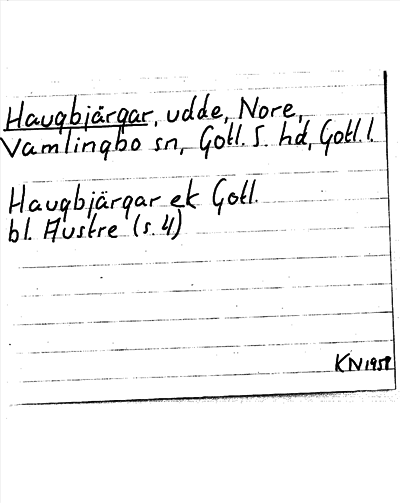 Haugbjärgar, udde, Nore,
Vamlingbo sn, Gotl. S. hd, Gotl. l.
Haugbjärgar ek Gotl.
bl. Austre (s. 4)
KN 1959